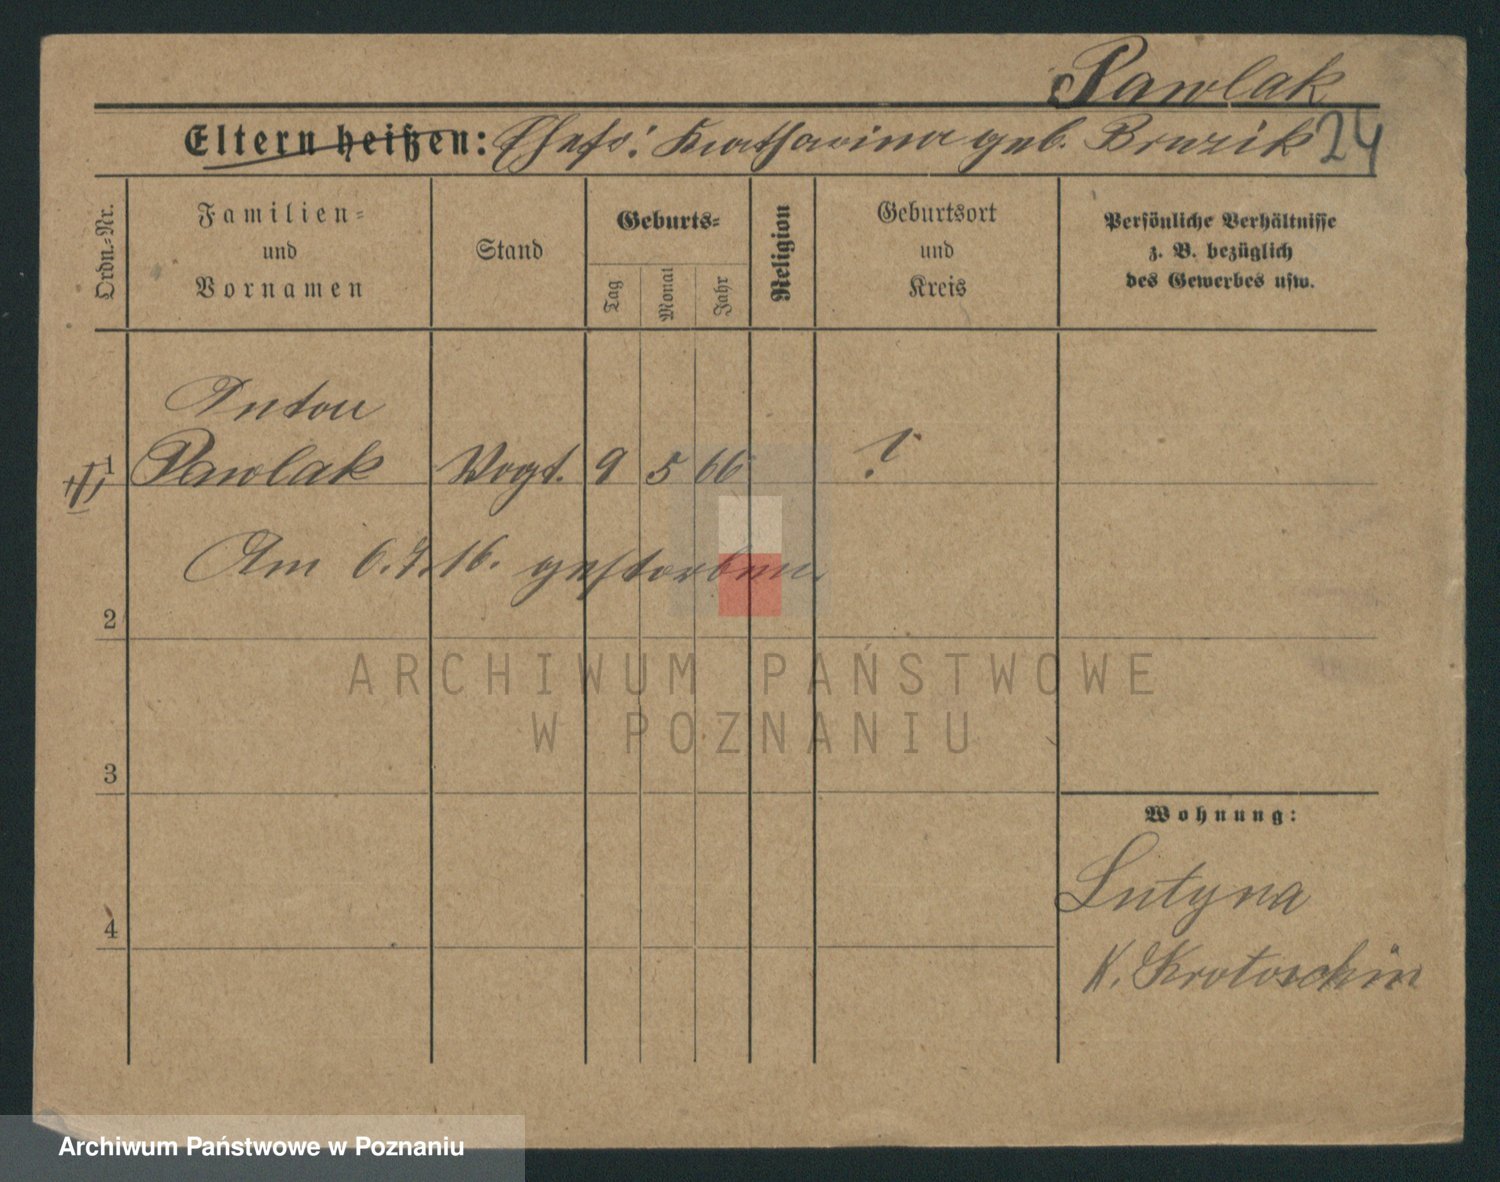 Pawlak
Eltern heißen: Ehefr: Katharina geb. Bruzik 24
Ordn.-Nr.
Familien-
und
Vornamen
Stand
Geburts-
Tag
Monat
Jahr
Religion
Geburtsort
und
Kreis
Persönliche Verhältnisse
z. B. bezüglich
des Gewerbes usw.
Anton
1 Pawlak Vogt. 9 5 66 ?
Am 6.7.16. gestorben.
2
3
4
Wohnung:
Lutynia
K. Krotoschin
ARCHIWUM PAŃSTWOWE
W POZNANIU
Archiwum Państwowe w Poznaniu